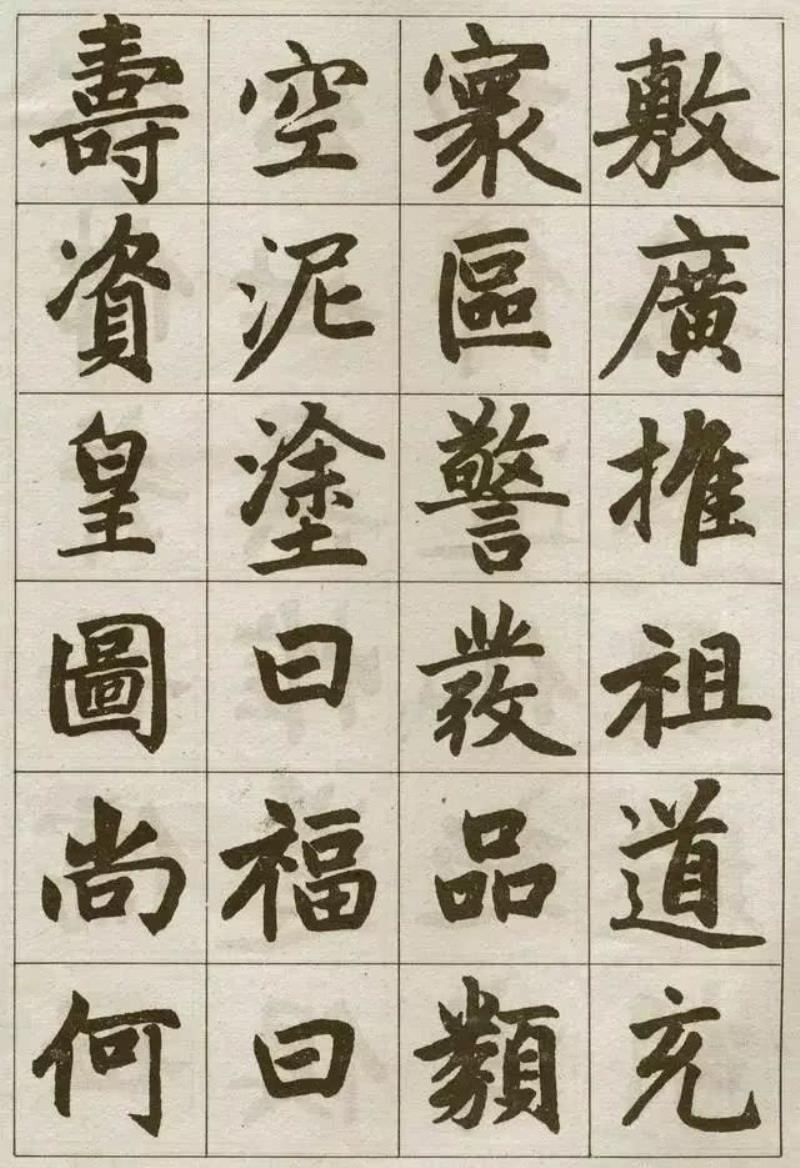 敷廣推祖道充
寰區警發品類
空泥塗曰福曰
壽資皇圖尚何